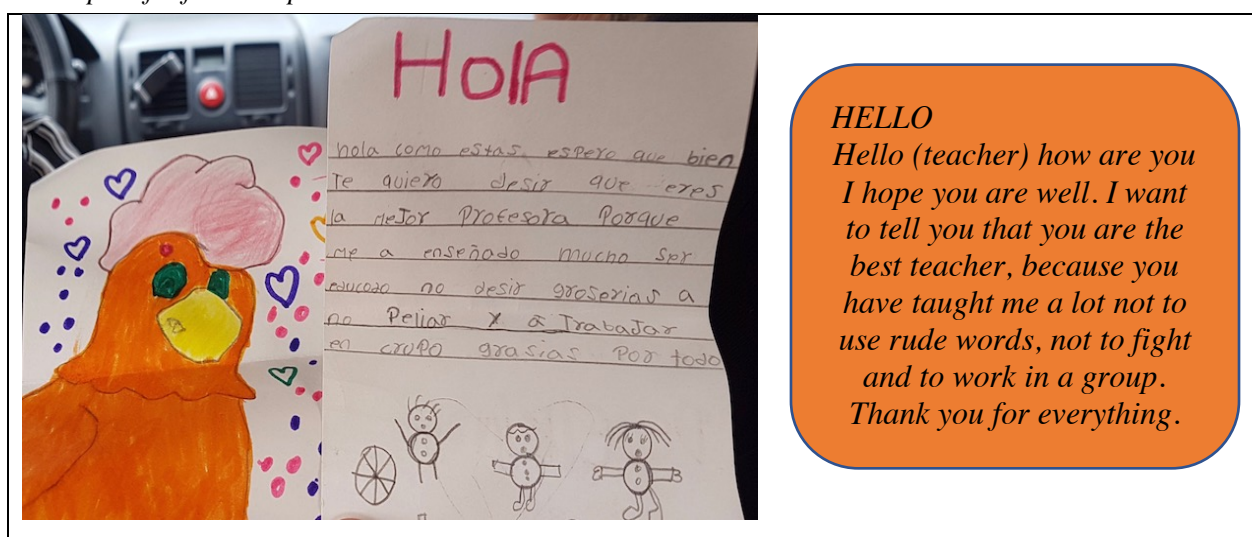 HolA
hola como estas espero que bien
Te quiero desir que eres
la meJor Profesora Porque
me a enseñado mucho ser
educado no desir groserias a
no Peliar y a TrabaJar
en grupo grasias Por todo
HELLO
Hello (teacher) how are you
I hope you are well. I want
to tell you that you are the
best teacher, because you
have taught me a lot not to
use rude words, not to fight
and to work in a group.
Thank you for everything.